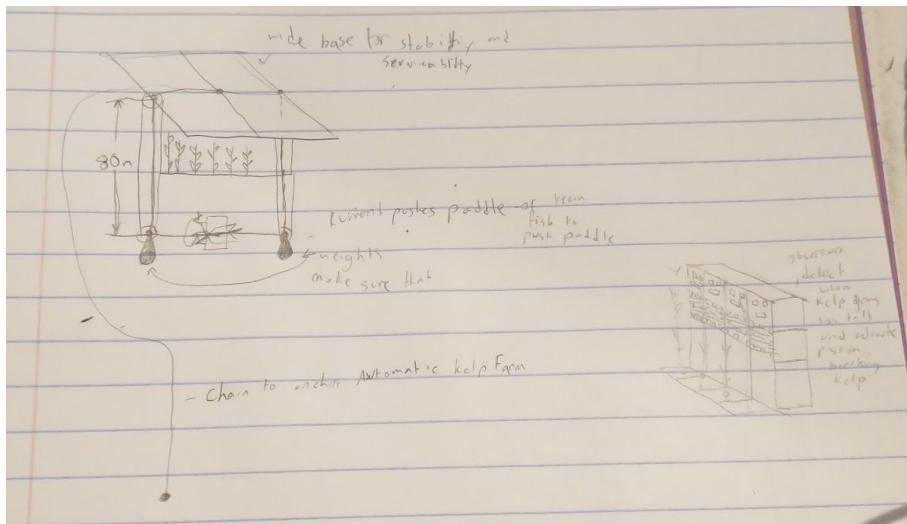 wide base for stability and
servicability
80m
Current pushes paddle or train
fish to
push paddle
weights
make sure that
- Chain to anchor
Automatic kelp Farm
observers
detect
when
kelp grows
too tall
and activate
piston
breaking
kelp